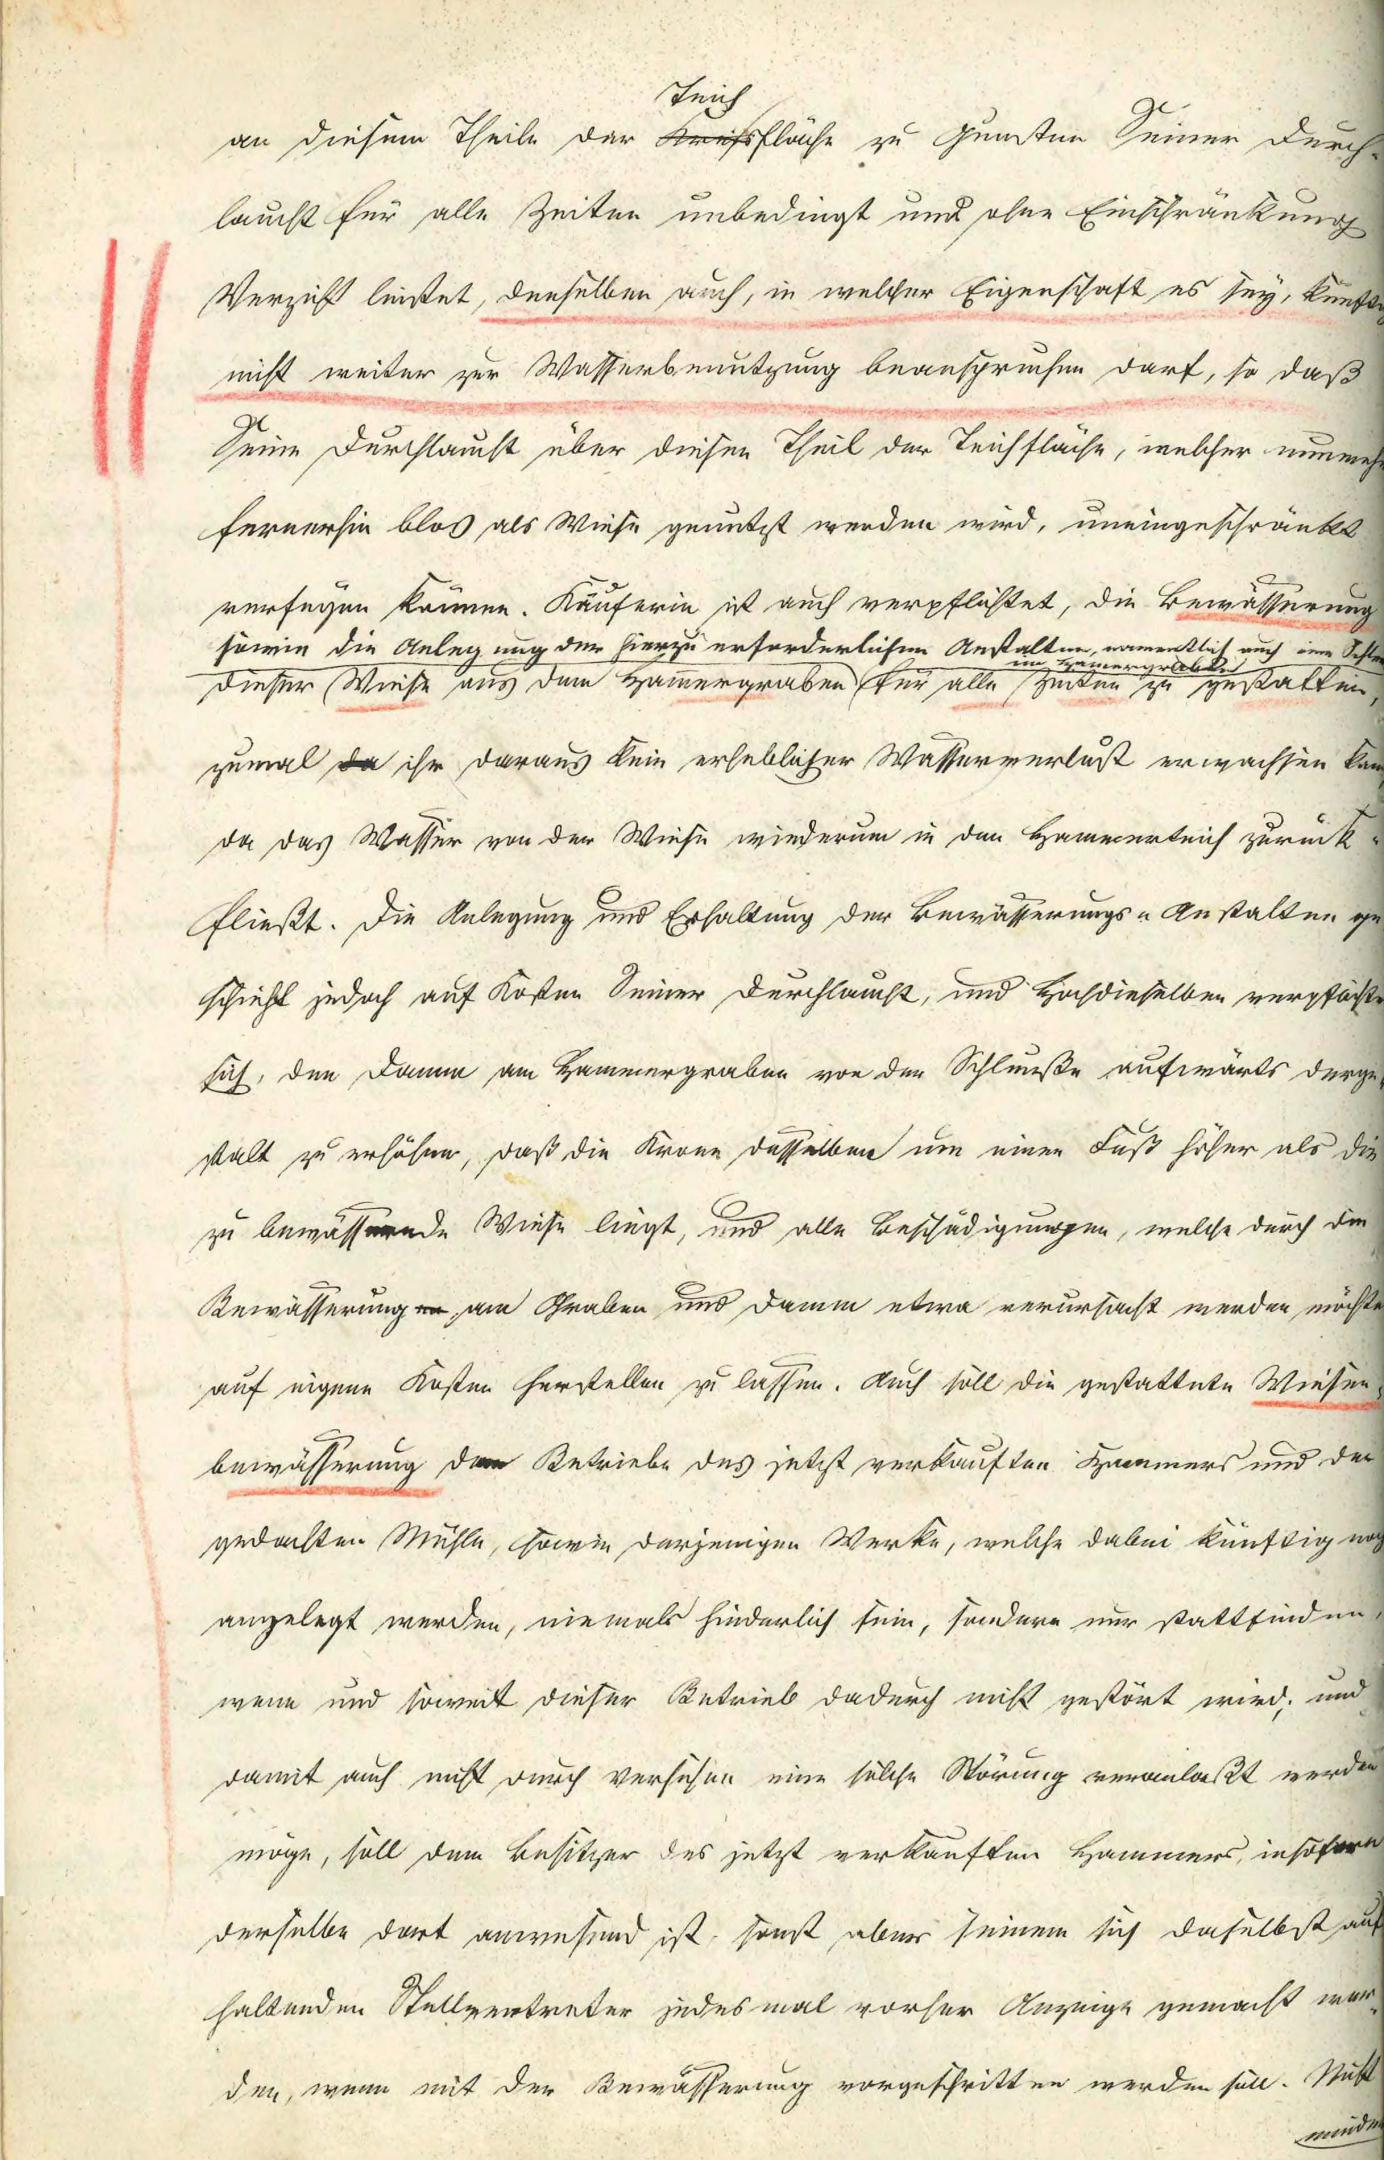 Teich
an diesem Theile der Kreisfläche zu Gunsten Seiner Durch-
laucht für alle Zeiten unbedingt und ohne Einschränkung
Verzicht leistet, denselben auch, in welcher Eigenschaft es sey, künftig
nicht weiter zur Wasserbenutzung beanspruchen darf, so daß
Seine Durchlaucht über diesen Theil der Teichfläche, welcher nunmehr
fernerhin blos als Wiese genutzt werden wird, uneingeschränkt
verfügen können. Käuferin ist auch verpflichtet, die Bewässerung
sowie die Anlegung der hierzu erforderlichen Anstalten, namentlich auch
im Hamergraben
dieser Wiese aus dem Hamergraben für alle Zeiten zu gestatten,
zumal da ihr daraus kein erheblicher Wasserverlust erwachsen kann
da das Wasser von der Wiese wiederum in den Hammerteich zurück-
fließt. Die Anlegung und Erhaltung der Bewässerungs-Anstalten ge
schieht jedoch auf Kosten Seiner Durchlaucht, und Hochdieselben verpflichten
sich, den Damm am Hammergraben von der Schleuße aufwärts derge-
stalt zu erhöhen, daß die Krone desselben um einen Fuß höher als die
zu bewässernde Wiese liegt, und alle Beschädigungen, welche durch die
Bewässerungen am Graben und Damm etwa verursacht werden möchten
auf eigene Kosten herstellen zu lassen. Auch soll die gestattete Wiesen-
bewässerung dem Betriebe des jetzt verkauften Hammers und der
gedachten Mühle, sowie derjenigen Werke, welche dabei künftig noch
angelegt werden, niemals hinderlich sein, sondern nur stattfinden,
wenn und soweit dieser Betrieb dadurch nicht gestört wird; und
damit auch nicht durch Versehen eine solche Störung veranlaßt werden
möge, soll dem Besitzer des jetzt verkauften Hammers, insofern
derselbe dort anwesend ist, sonst aber seinem sich daselbst auf
haltenden Stellvertreter jedesmal vorher Anzeige gemacht wer-
den, wenn mit der Bewässerung vorgeschritten werden soll. Nicht
minder